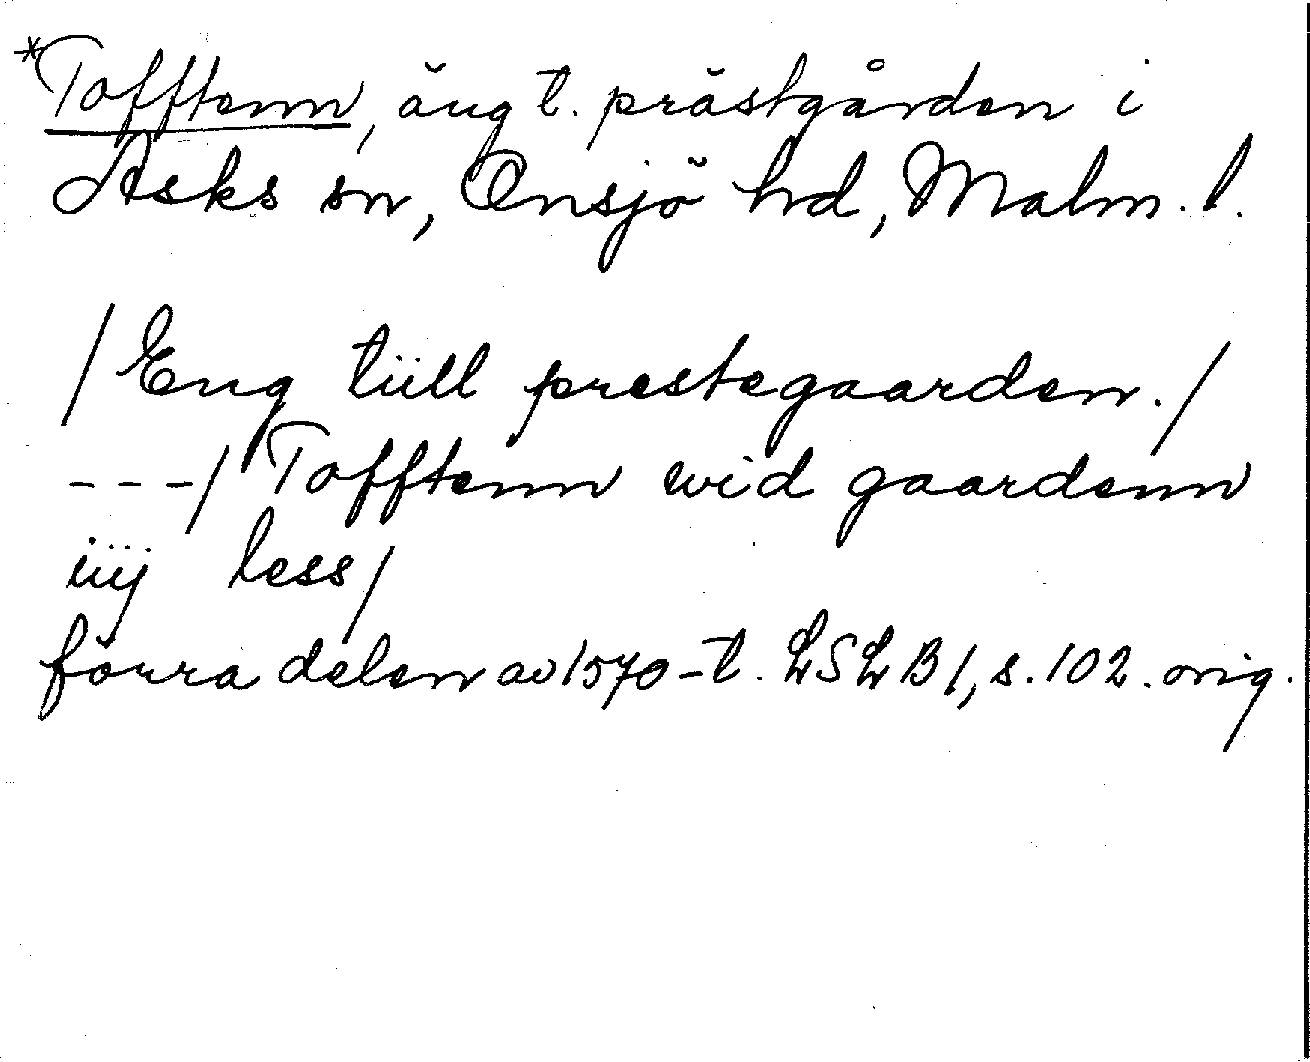 *Tofftenn, äng t. prästgården i
Asks sn, Onsjö hd, Malm. l.
/Eng tiill prestegaarden./
---/ Tofftenn wid gaardenn
iiij less/
förra delen av 1570-t. LSLB1, s. 102. orig.